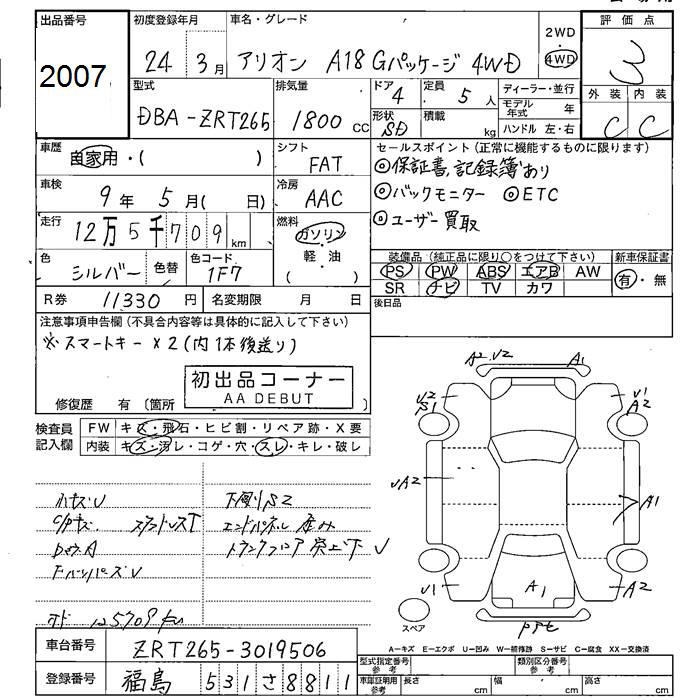 出品番号
2007
初度登録年月
24年3月
車名・グレード
アリオン A18 Gパッケージ 4WD
2WD
4WD
評価点
3
外装 内装
C C
型式
DBA-ZRT265
排気量
1800 CC
ドア
4
定員
5人
形状
SD
積載
kg
ディーラー・並行
モデル年式 年
ハンドル 左・右
車歴
自家用・( )
シフト
FAT
車検
9年5月( 日)
冷房
AAC
走行
12万5千709km
燃料
ガソリン
・
軽・油
( )
色
シルバー
色替
色コード
1F7
R券 11330円
名変期限 月 日
セールスポイント (正常に機能するものに限ります)
◎保証書,記録簿あり
◎バックモニター ◎ETC
◎ユーザー買取
装備品 (純正品に限り○をつけて下さい)
PS PW ABS エアB AW
SR ナビ TV カワ
新車保証書
有・無
後日品
注意事項申告欄 (不具合内容等は具体的に記入して下さい)
※スマートキー×2(内1本後送り)
初出品コーナー
AA DEBUT
修復歴 有 〔箇所 〕
検査員
記入欄
FW キズ・飛石・ヒビ割・リペア跡・X要
内装 キズ・汚レ・コゲ・穴・スレ・キレ・破レ
下廻りS2
トランクフロア 突上下 V
125709km
A2.V2 A1
V2
S1
V1
A2
VA2
A1
V1
A1
A2
スペア
A-キズ E-エクボ U-凹み W-補修跡 S-サビ C-腐食 XX-交換済
車台番号 ZRT265-3019506
登録番号 福島 531 さ 8811
型式指定番号
参考
類別区分番号
参考
車庫証明用
参考
長さ cm
幅 cm
高さ cm